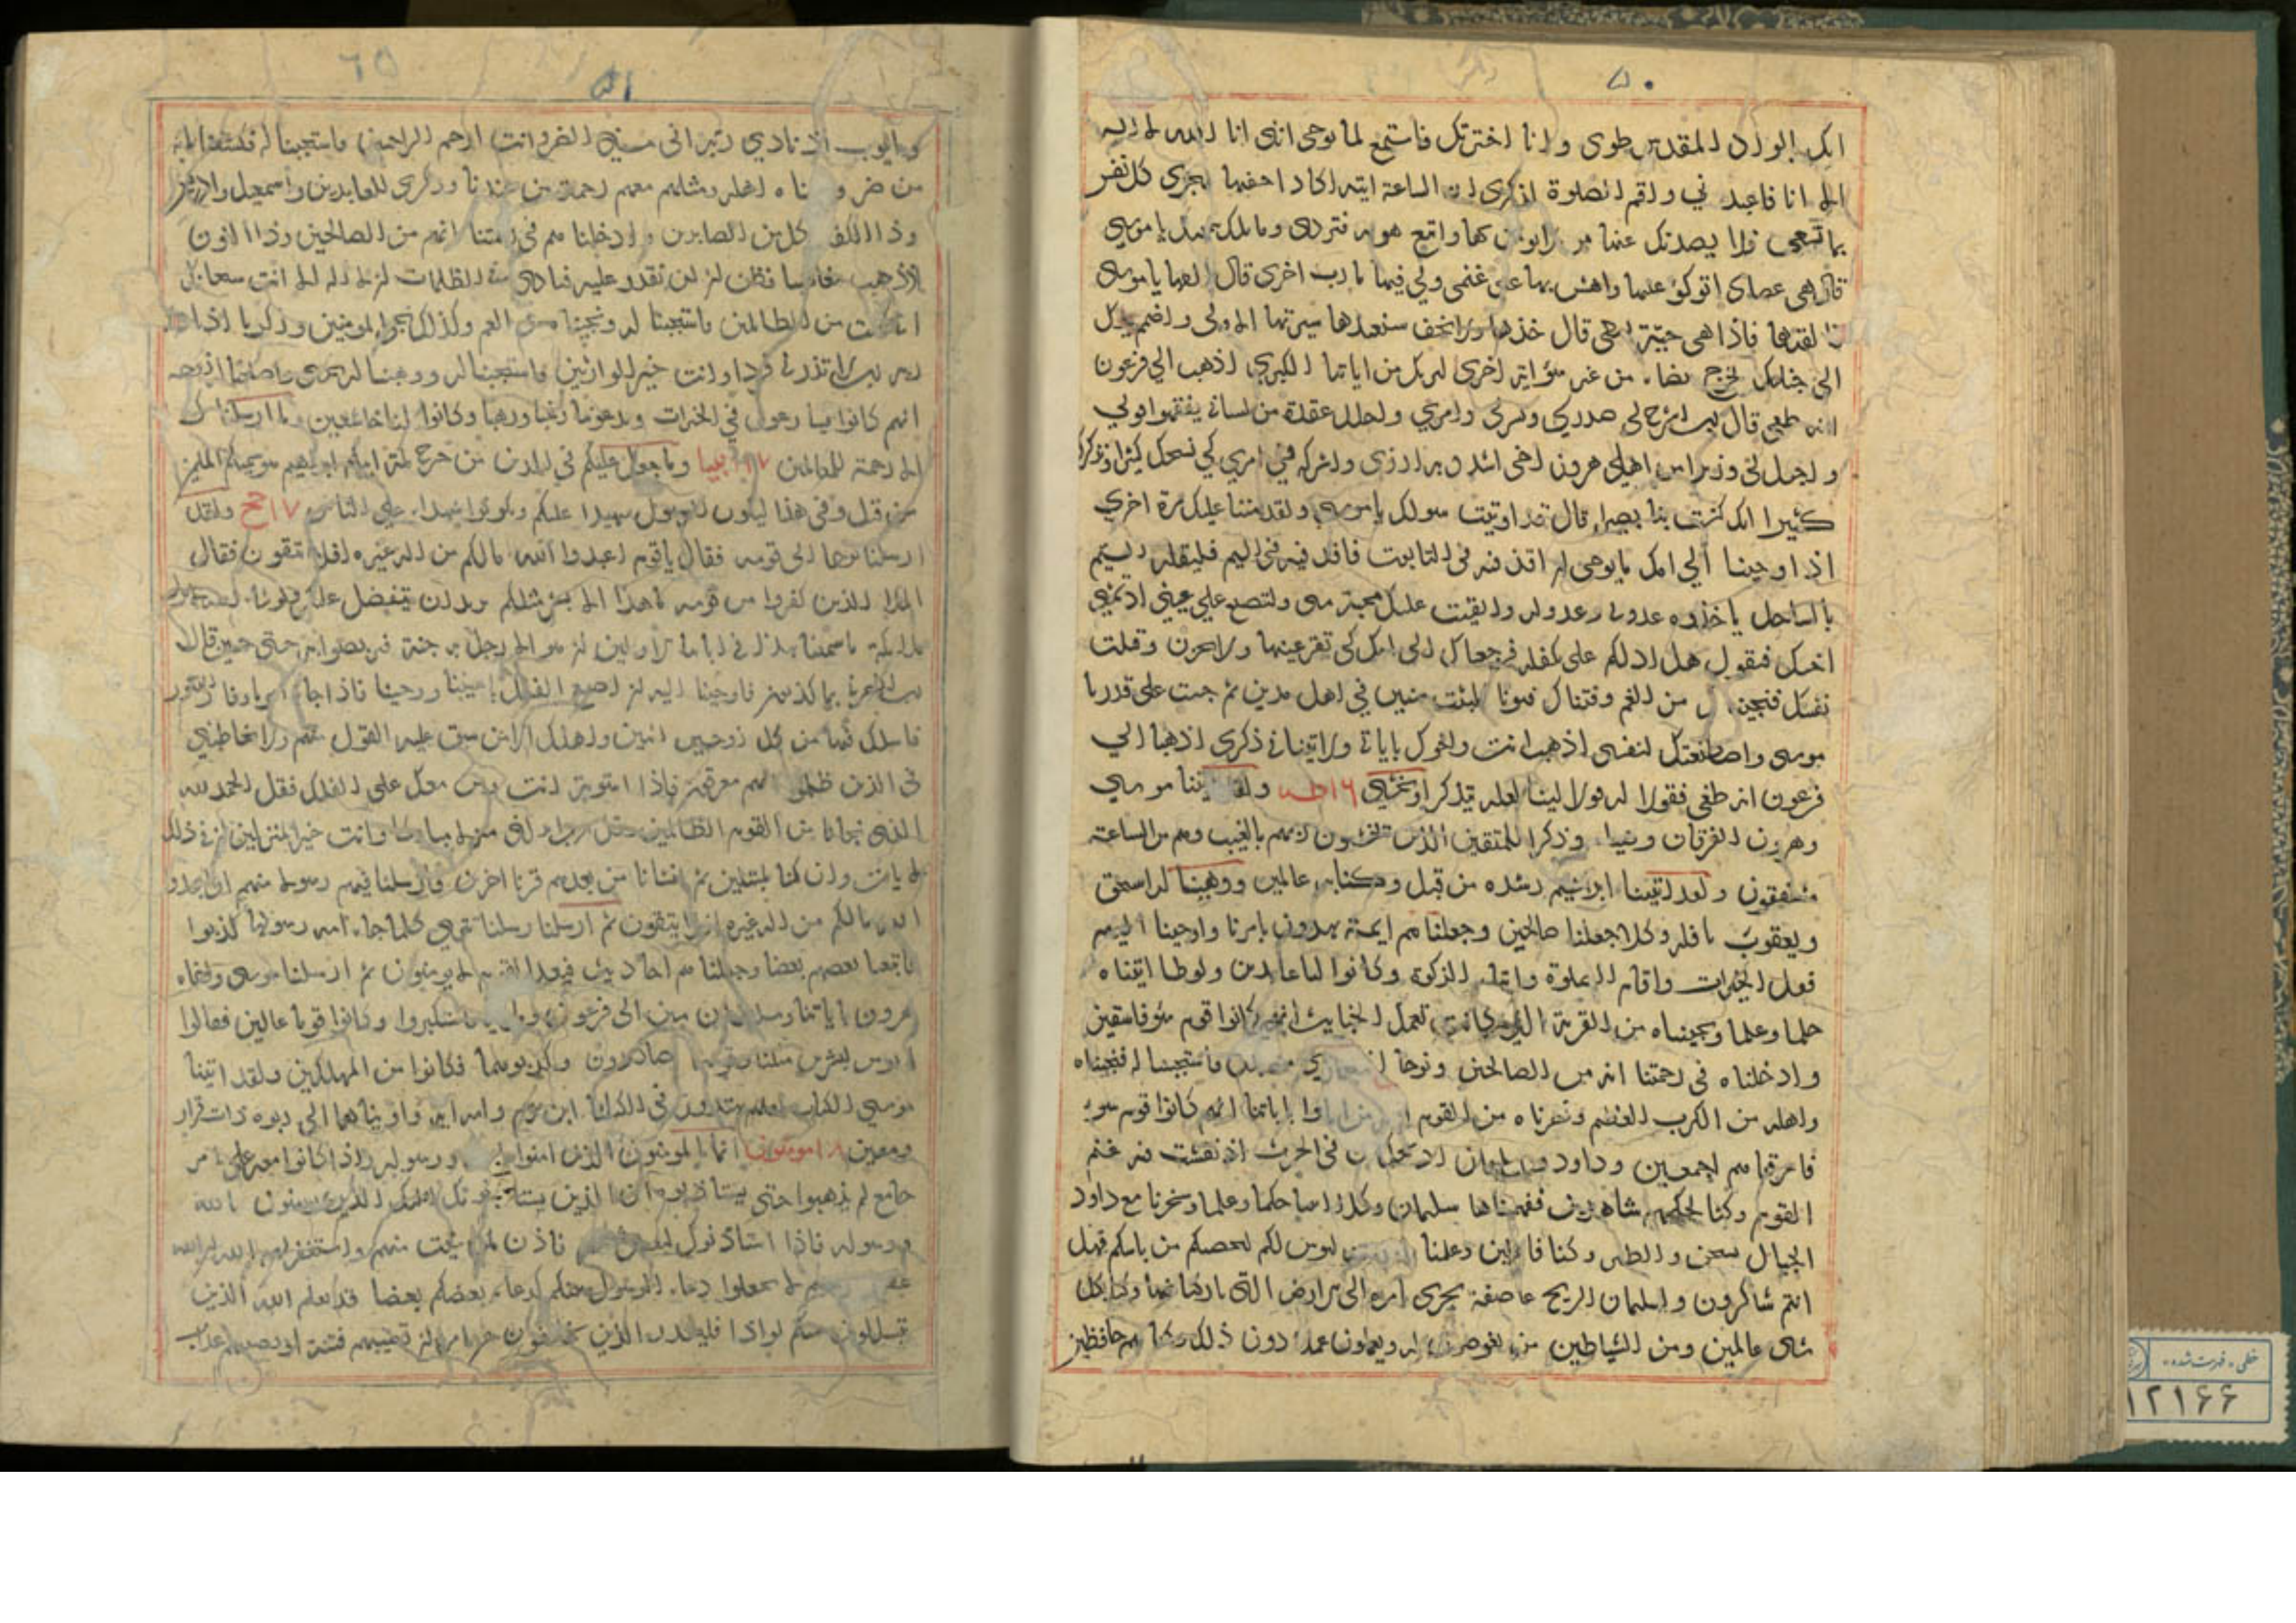 ۵۰
انك بالواد المقدس طوى وانا اخترتك فاستمع لما يوحى انني انا الله لا اله
الا انا فاعبدني واقم الصلوة لذكرى ان الساعة اتية اكاد اخفيها لتجزى كل نفس
بما تسعى فلا يصدنك عنها من لا يؤمن بها واتبع هويه فتردى وما تلك بيمينك يا موسى
قال هى عصاى اتوكؤ عليها واهش بها على غنمى ولي فيها مارب اخرى قال القها يا موسى
فالقيها فاذا هى حيّة تسعى قال خذها ولا تخف سنعيدها سيرتها الاولى واضمم يدك
الى جناحك تخرج بيضاء من غير سؤ اية اخرى لنريك من اياتنا الكبرى اذهب الي فرعون
انه طغى قال رب اشرح لى صدري ويسرلى امري واحلل عقدة من لسانى يفقهوا قولي
واجعل لى وزيرا من اهلى هرون اخى اشدد به ازرى واشركه في امري كي نسبحك كثيرا ونذكرك
كثيرا انك كنت بنا بصيرا قال قد اوتيت سولك يا موسى ولقد مننا عليك مرة اخرى
اذ اوحينا الي امك ما يوحى ان اقذفيه فى التابوت فاقذفيه فى اليم فليلقه اليم
بالساحل ياخذه عدو لى وعدو له والقيت عليك محبة منى ولتصنع علي عينى اذ تمشى
اختك فتقول هل ادلكم على من يكفله فرجعناك الى امك كى تقر عينها ولا تحزن وقتلت
نفسا فنجيناك من الغم وفتناك فتونا فلبثت سنين في اهل مدين ثم جئت على قدر يا
موسى واصطنعتك لنفسى اذهب انت واخوك باياتى ولا تنيا فى ذكرى اذهبا الي
فرعون انه طغى فقولا له قولا لينا لعله يتذكر او يخشى ۱۶ طه ولقد اتينا موسي
وهرون الفرقان وضياء وذكرا للمتقين الذين يخشون ربهم بالغيب وهم من الساعة
مشفقون ولقد اتينا ابرهيم رشده من قبل وكنا به عالمين ووهبنا له اسحق
ويعقوب نافلة وكلا جعلنا صالحين وجعلناهم ايمة يهدون بامرنا واوحينا اليهم
فعل الخيرات واقام الصلوة وايتاء الزكوة وكانوا لنا عابدين ولوطا اتيناه
حكما وعلما ونجيناه من القرية التى كانت تعمل الخبايث انهم كانوا قوم سؤ فاسقين
وادخلناه فى رحمتنا انه من الصالحين ونوحا اذ نادي من قبل فاستجبنا له فنجيناه
واهله من الكرب العظيم ونصرناه من القوم الذين كذبوا باياتنا انهم كانوا قوم سوء
فاغرقناهم اجمعين وداود وسليمان اذ يحكمان فى الحرث اذ نفشت فيه غنم
القوم وكنا لحكمهم شاهدين ففهمناها سليمان وكلا اتينا حكما وعلما وسخرنا مع داود
الجبال يسبحن والطير وكنا فاعلين وعلمناه صنعة لبوس لكم لتحصنكم من باسكم فهل
انتم شاكرون ولسليمان الريح عاصفة تجرى بامره الى الارض التى باركنا فيها وكنا بكل
شى عالمين ومن الشياطين من يغوصون له ويعملون عملا دون ذلك وكنا لهم حافظين
۵۱
۶۵
وايوب اذ نادي ربه انى مسنى الضر وانت ارحم الراحمين فاستجبنا له فكشفنا ما به
من ضر واتيناه اهله ومثلهم معهم رحمة من عندنا وذكرى للعابدين واسمعيل وادريس
وذا الكفل كل من الصابرين وادخلناهم فى رحمتنا انهم من الصالحين وذا النون
اذ ذهب مغاضبا فظن ان لن نقدر عليه فنادى فى الظلمات ان لا اله الا انت سبحانك
انى كنت من الظالمين فاستجبنا له ونجيناه من الغم وكذلك ننجى المومنين وزكريا اذ نادى
ربه رب لا تذرنى فردا وانت خير الوارثين فاستجبنا له ووهبنا له يحيى واصلحنا له زوجه
انهم كانوا يسارعون في الخيرات ويدعوننا رغبا ورهبا وكانوا لنا خاشعين وما ارسلناك
الا رحمة للعالمين انبيا وما جعل عليكم في الدين من حرج ملة ابيكم ابرهيم هو سميكم المسلمين
من قبل وفى هذا ليكون الرسول شهيدا عليكم وتكونوا شهداء على الناس ۱۷ حج ولقد
ارسلنا نوحا الى قومه فقال يا قوم اعبدوا الله ما لكم من اله غيره افلا تتقون فقال
الملا الذين كفروا من قومه ما هذا الا بشر مثلكم يريد ان يتفضل عليكم ولو شاء الله لانزل
ملايكة ما سمعنا بهذا فى اباينا الاولين ان هو الا رجل به جنة فتربصوا به حتى حين قال
رب انصرنى بما كذبون فاوحينا اليه ان اصنع الفلك باعيننا ووحينا فاذا جاء امرنا وفار التنور
فاسلك فيها من كل زوجين اثنين واهلك الا من سبق عليه القول منهم ولا تخاطبنى
فى الذين ظلموا انهم مغرقون فاذا استويت انت ومن معك على الفلك فقل الحمد لله
الذى نجانا من القوم الظالمين وقل رب انزلنى منزلا مباركا وانت خير المنزلين ان فى ذلك
لايات وان كنا لمبتلين ثم انشانا من بعدهم قرنا اخرين فارسلنا فيهم رسولا منهم ان اعبدوا
الله ما لكم من اله غيره افلا تتقون ثم ارسلنا رسلنا تترى كلما جاء امة رسولها كذبوا
فاتبعنا بعضهم بعضا وجعلناهم احاديث فبعدا لقوم لا يومنون ثم ارسلنا موسى واخاه
هرون باياتنا وسلطان مبين الى فرعون وملائه فاستكبروا وكانوا قوما عالين فقالوا
انومن لبشرين مثلنا وقومهما لنا عابدون فكذبوهما فكانوا من المهلكين ولقد اتينا
موسى الكتاب لعلهم يهتدون وجعلنا ابن مريم وامه اية واويناهما الى ربوة ذات قرار
ومعين مومنون انما المومنون الذين امنوا بالله ورسوله واذا كانوا معه على امر
جامع لم يذهبوا حتى يستاذنوه ان الذين يستاذنونك اولئك الذين يومنون بالله
ورسوله فاذا استاذنوك لبعض شانهم فاذن لمن شئت منهم واستغفر لهم الله ان الله
غفور رحيم لا تجعلوا دعاء الرسول بينكم كدعاء بعضكم بعضا قد يعلم الله الذين
يتسللون منكم لواذا فليحذر الذين يخالفون عن امره ان تصيبهم فتنة او يصيبهم عذاب
خطى - فهرست شده -
۱۲۱۶۶